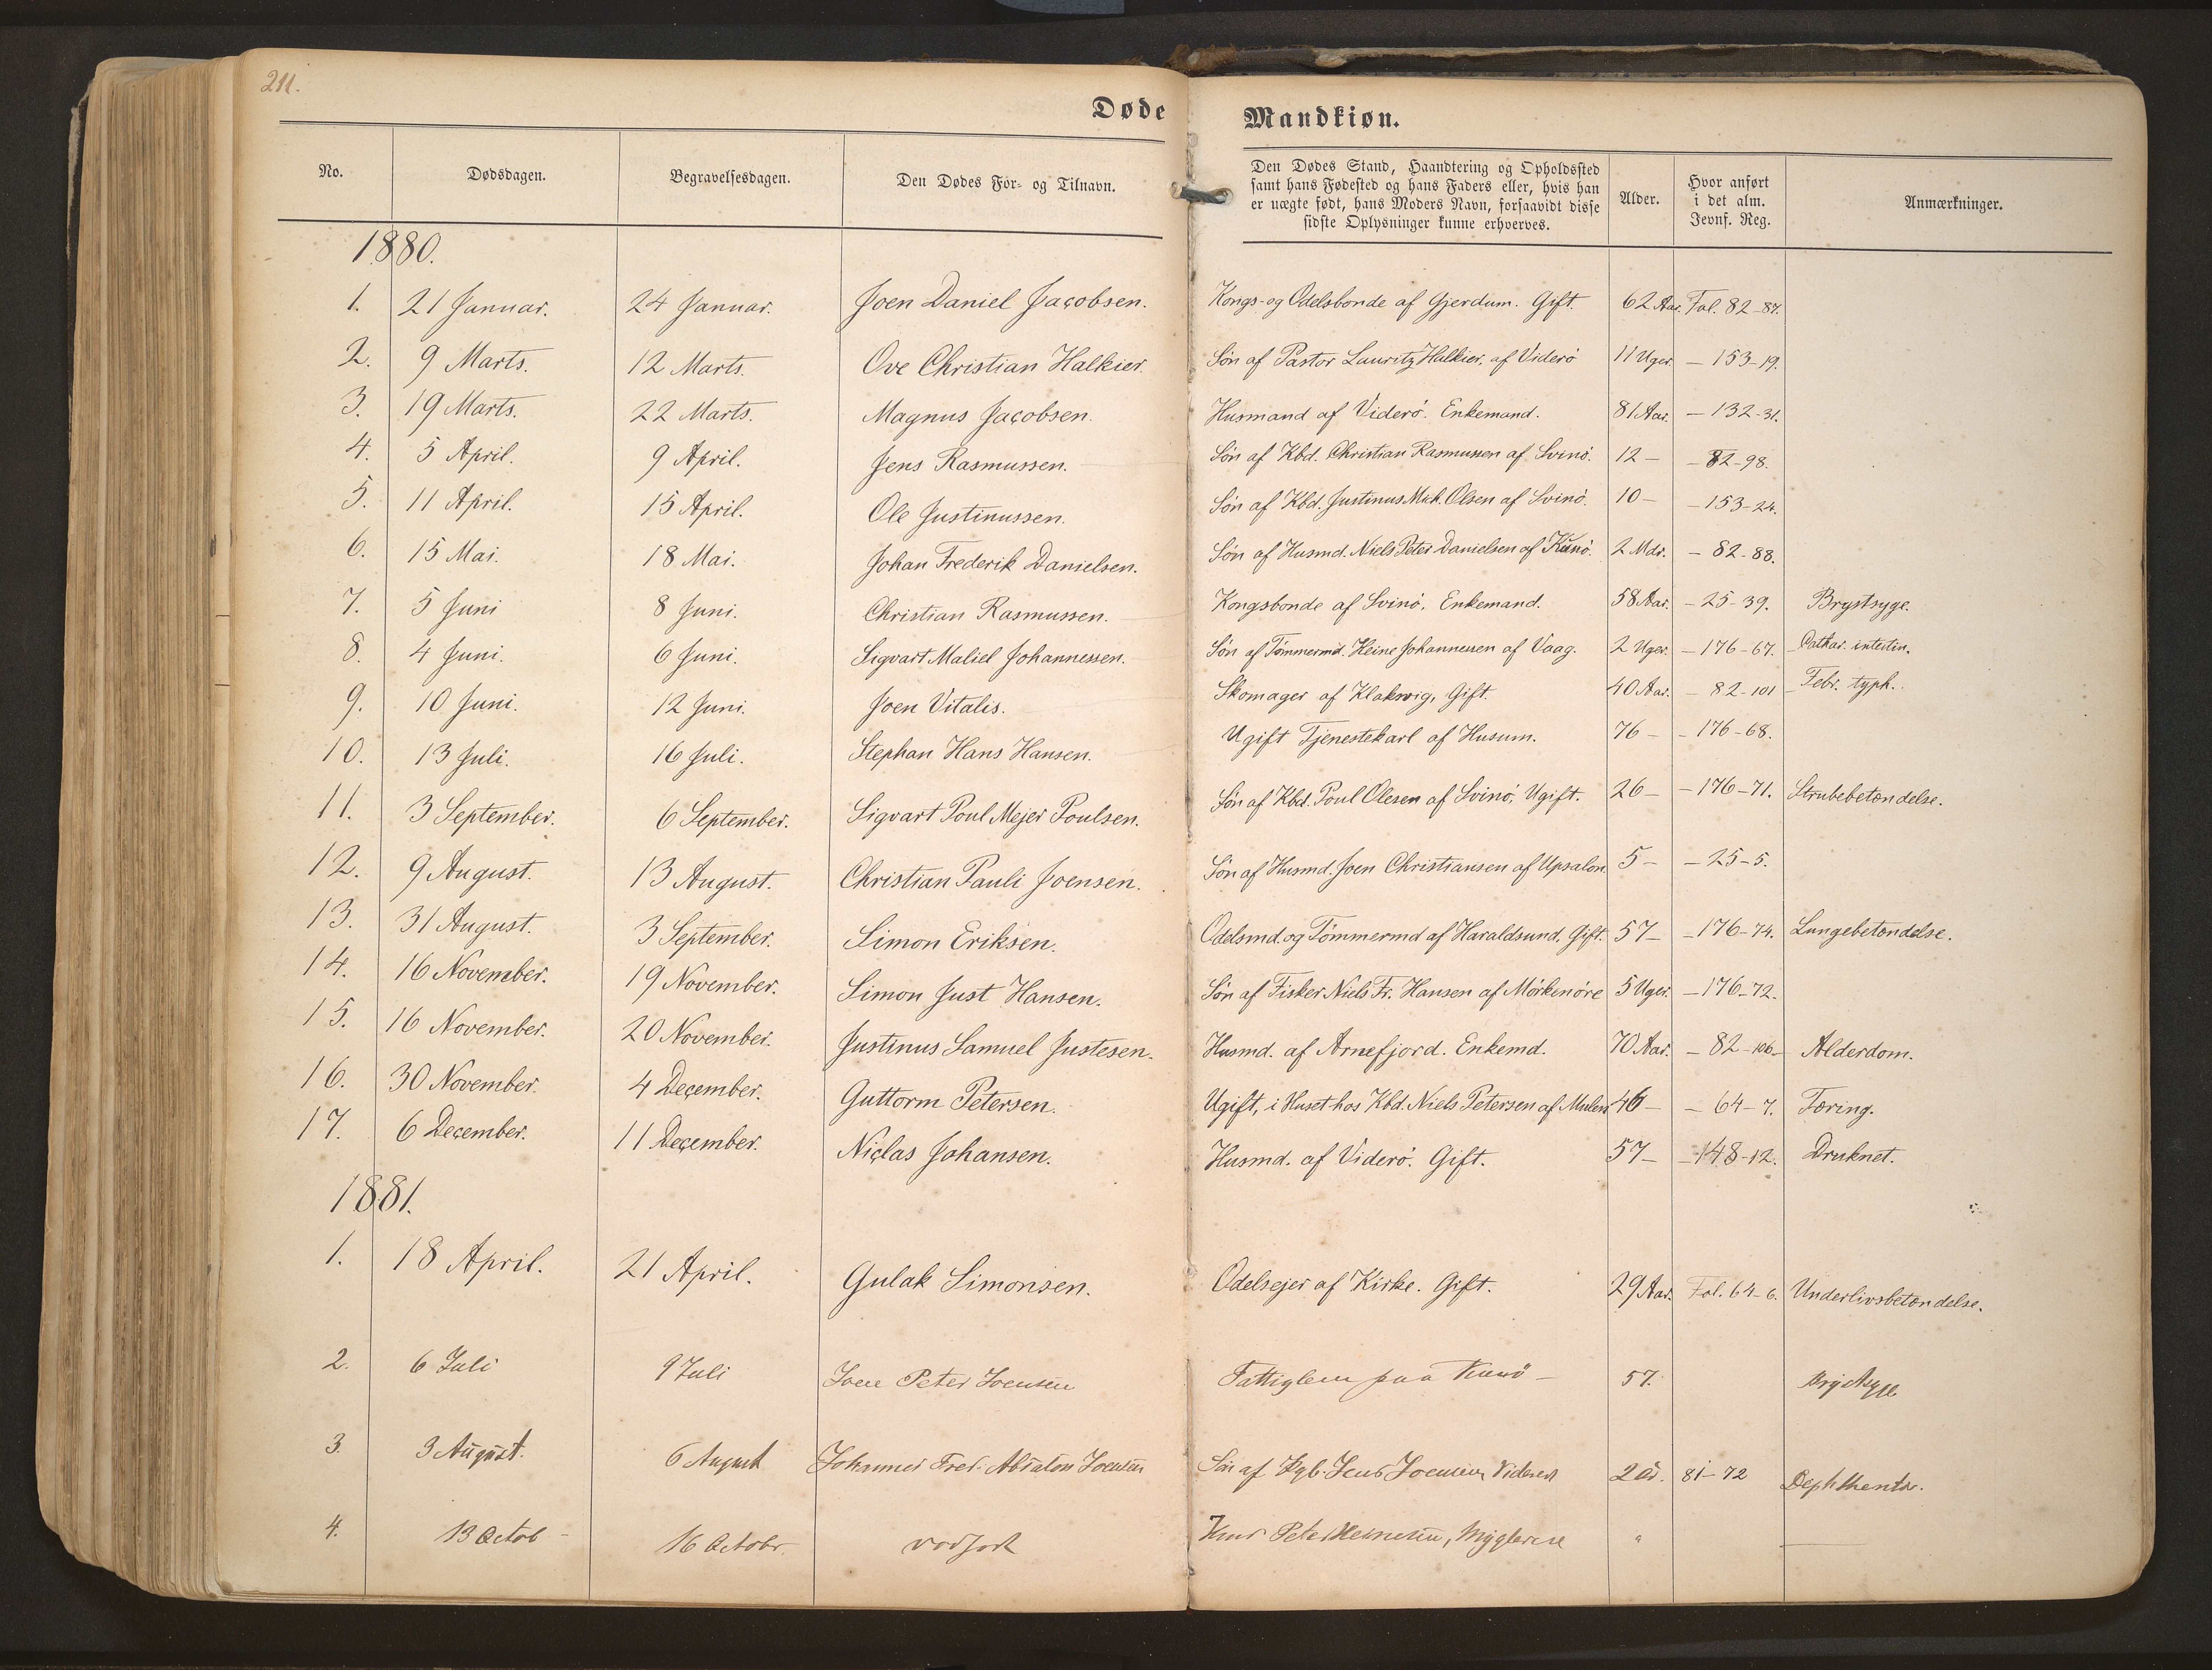 211.
Døde Mandkiøn.
No. Dødsdagen. Begravelsesdagen. Den Dødes For- og Tilnavn. Den Dødes Stand, Haandtering og Opholdssted samt hans Fødested og hans Faders eller, hvis han er uægte født, hans Moders Navn, forsaavidt disse sidste Oplysninger kunne erhverves. Alder. Hvor anført i det alm. Jevnf. Reg. Anmærkninger.
1880.
1. 21 Januar. 24 Januar. Joen Daniel Jacobsen. Kongs- og Odelsbonde af Gjerdum. Gift. 62 Aar. Fol. 82-87.
2. 9 Marts. 12 Marts. Ove Christian Halkier Søn af Pastor Lauritz Halkier, af Viderö 11 Uger. — 153-19.
3. 19 Marts. 22 Marts. Magnus Jacobsen. Husmand af Viderö. Enkemand. 81 Aar. — 132-31.
4. 5 April. 9 April. Jens Rasmussen. Søn af Kbd. Christian Rasmussen af Svinö. 12 — — 82-98.
5. 11 April. 15 April. Ole Justinussen. Søn af Kbd. Justinus Mich. Olsen af Svinö. 10 — — 153-24.
6. 15 Mai. 18 Mai. Johan Frederik Danielsen. Søn af Husmd. Niels Peter Danielsen af Kunö. 2 Mdr. — 82-88.
7. 5 Juni 8 Juni. Christian Rasmussen. Kongsbonde af Svinö. Enkemand. 58 Aar. — 25-39. Brystsyge.
8. 4 Juni. 6 Juni. Sigvart Maliel Johannessen. Søn af Tömmermd. Heine Johannessen af Vaag. 2 Uger. — 176-67. Cathar. intestin.
9. 10 Juni. 12 Juni. Joen Vitalis. Skomager af Klaksvig, Gift. 40 Aar. — 82-101 Febr. typh.
10. 13 Juli. 16 Juli. Stephan Hans Hansen. Ugift Tjenestekarl af Husum. 76 — — 176-68.
11. 3 September. 6 September. Sigvart Poul Mejer Poulsen. Søn af Kbd. Poul Olesen af Svinö, Ugift. 26 — — 176-71. Strubebetændelse.
12. 9 August. 13 August. Christian Pauli Joensen. Søn af Husmd. Joen Christiansen af Upsalon 5 — — 25-5.
13. 31 August. 3 September. Simon Eriksen. Odelsmd. og Tömmermd af Haraldsund, Gift. 57 — — 176-74. Lungebetændelse.
14. 16 November. 19 November. Simon Just Hansen. Søn af Fisker Niels Fr. Hansen af Mörkenöre 5 Uger. — 176-72.
15. 16 November. 20 November. Justinus Samuel Justesen. Husmd. af Arnefjord. Enkemd. 70 Aar. — 82-106— Alderdom.
16. 30 November. 4 December. Guttorm Petersen. Ugift, i Huset hos Kbd. Niels Petersen af Mulen 46 — — 64-7. Tæring.
17. 6 December. 11 December. Niclas Johansen. Husmd. af Viderö. Gift. 57 — — 148-12. Druknet.
1881.
1. 18 April. 21 April. Gulak Simonsen. Odelsejer af Kirke. Gift. 29 Aar. Fol. 64-6. Underlivsbetændelse.
2. 6 Juli 9 Juli Joen Peter Joensen Fattiglem paa Kunö — 57. Brystsyge
3. 3 August. 6 August Johannes Fred. Absalon Joensen Søn af Kgb. Jens Joensen, 81-72
4. 13 Octob — 16 Octobr. Peter Heinesen, "